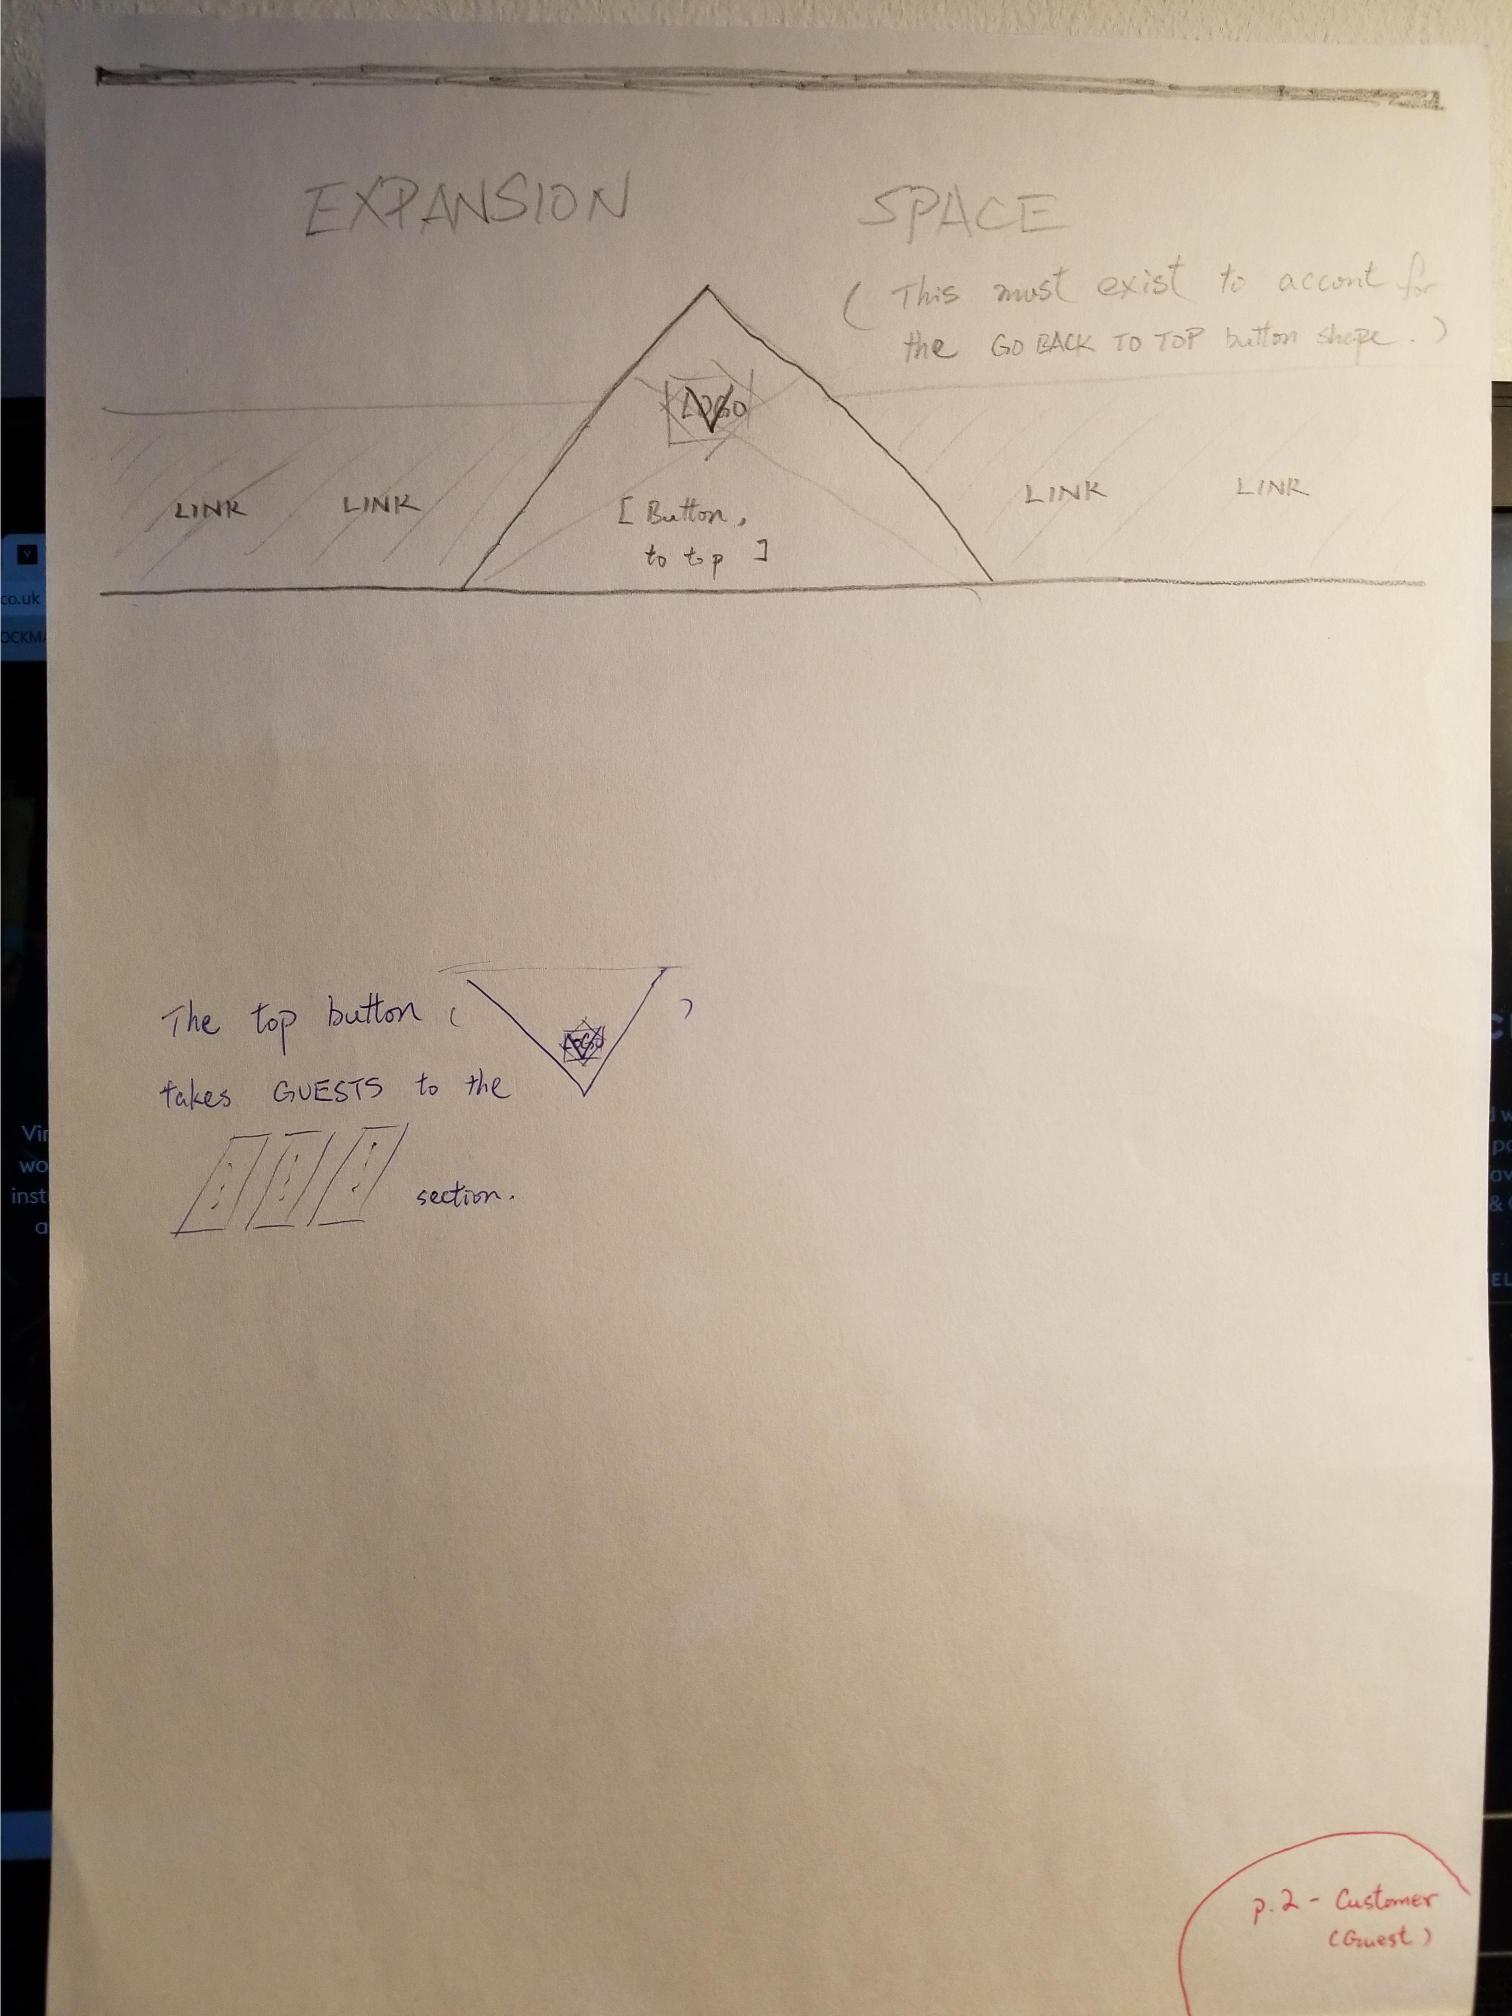 EXPANSION SPACE
( This must exist to accont for
the GO BACK TO TOP button shape. )
LOGO
V
LINK LINK
[ Button,
to top ]
LINK LINK
The top button ( LOGO V )
takes GUESTS to the
section.
p.2 - Customer
(Guest)
V
co.uk
Vir
wo
inst
a
EL